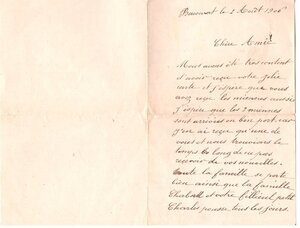 le 2 Août 1906
Chère Amie
Nous avons été très content
d'avoir reçu votre jolie
carte et j'espère que vous
avez reçu les miennes aussi
j'espère que les 2 miennes
sont arrivées en bon port car
j'en ai reçu qu'une de
vous et nous trouvons le
temps long de ne pas
recevoir de vos nouvelles.
toute la famille se porte
bien ainsi que la famille
et votre filleul petit
Charles pousse tous les jours.